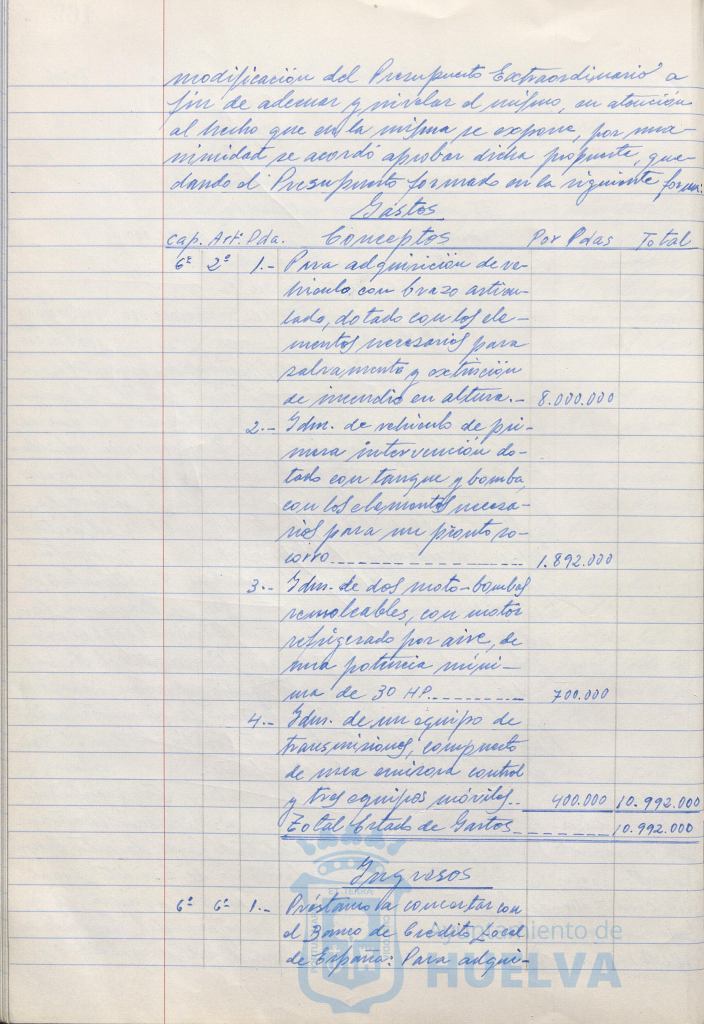 modificación del Presupuesto Extraordinario a
fin de adecuar y nivelar el mismo, en atención
al hecho que en la misma se expone, por una-
nimidad se acordó aprobar dicha propuesta, que-
dando el Presupuesto formado en la siguiente forma:
Gastos
Cap. Artº Pda. Conceptos Por Pdas Total
6º 2º 1.- Para adquisición de ve-
hículo con brazo articu-
lado, dotado con los ele-
mentos necesarios para
salvamento y extinción
de incendio en altura.- 8.000.000
2.- Idm. de vehículo de pri-
mera intervención do-
tado con tanque y bomba,
con los elementos necesa-
rios para un pronto so-
corro 1.892.000
3.- Idm. de dos moto-bombas
remolcables, con motor
refrigerado por aire, de
una potencia míni-
ma de 30 HP. 700.000
4.- Idm. de un equipo de
transmisiones, compuesto
de una emisora control
y tres equipos móviles.. 400.000 10.992.000
Total Estado de Gastos 10.992.000
Ingresos
6º 6º 1.- Préstamo a concertar con
el Banco de Crédito Local
de España: Para adqui-
Ayuntamiento de
HUELVA